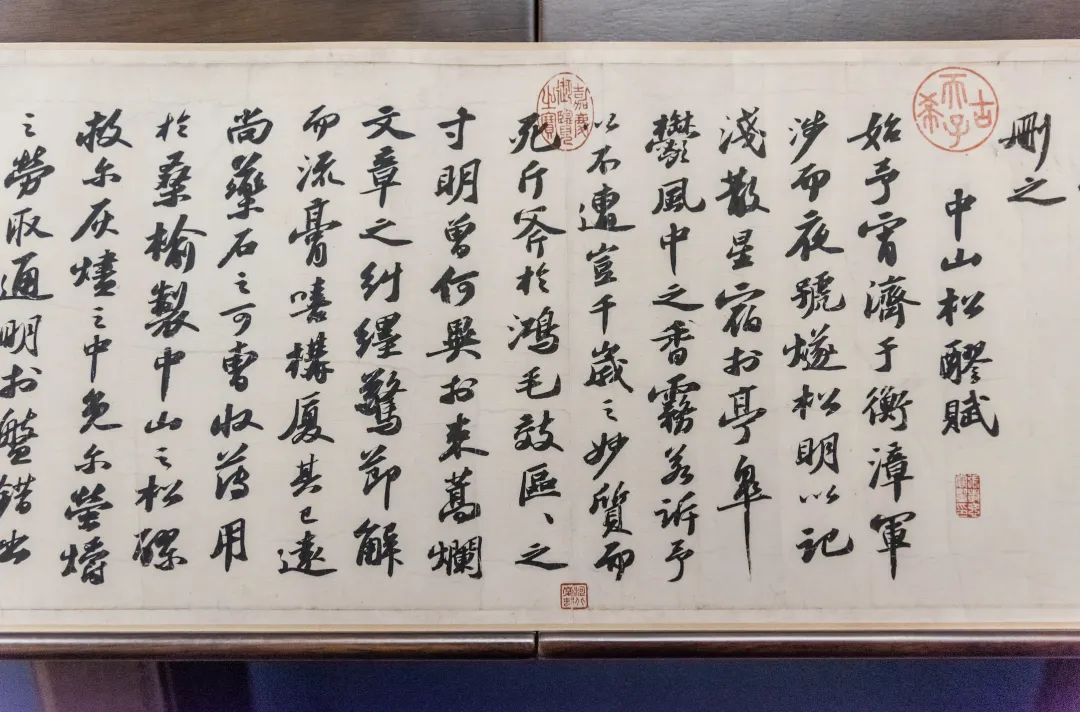 刪之
中山松醪賦
始予宵濟于衡漳軍
涉而夜號燧松明以記
淺散星宿於亭皐
鬱風中之香霧若訴予
以不遭豈千歲之妙質而
死斤斧於鴻毛效區〻之
寸明曾何異於束蒿爛
文章之糾纏驚節解
而流膏嘻構厦其已遠
尚藥石之可曹收薄用
於桑榆製中山之松醪
救尒灰燼之中免尒螢爝
之勞取通明於盤錯出
古希天子
嘉慶御覽之寶